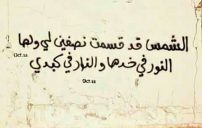 الشمس قد قسمت نصفين لي ولها
النور في خدها والنار في كبدي